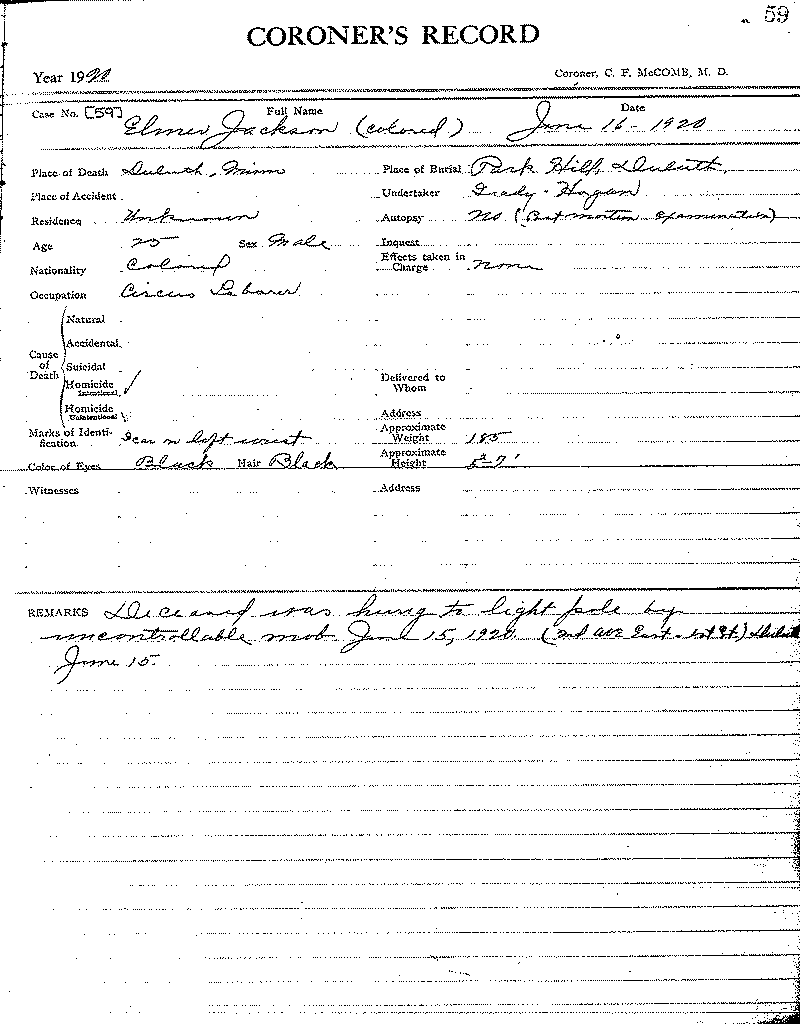 59
CORONER'S RECORD
Year 1920 Coroner, C. F. McCOMB, M. D.
Case No. [59] Full Name Date
Elmer Jackson (colored) June 16 - 1920
Place of Death Duluth, Minn Place of Burial Park Hill, Duluth,
Place of Accident Undertaker Grady - Hogan
Residence Unknown Autopsy No (Post mortem examination)
Age 25 Sex Male Inquest
Nationality Colored Effects taken in Charge none
Occupation Circus Laborer
Natural
Accidental
Cause of Death Suicidal
Homicide Intentional ✓ Delivered to Whom
Homicide Unintentional Address
Marks of Identification Scar on left wrist Approximate Weight 185
Color of Eyes Black Hair Black Approximate Height 5-7'
Witnesses Address
REMARKS Deceased was hung to light pole by
uncontrollable mob June 15, 1920 (2nd ave East - 1st St.) Duluth
June 15.